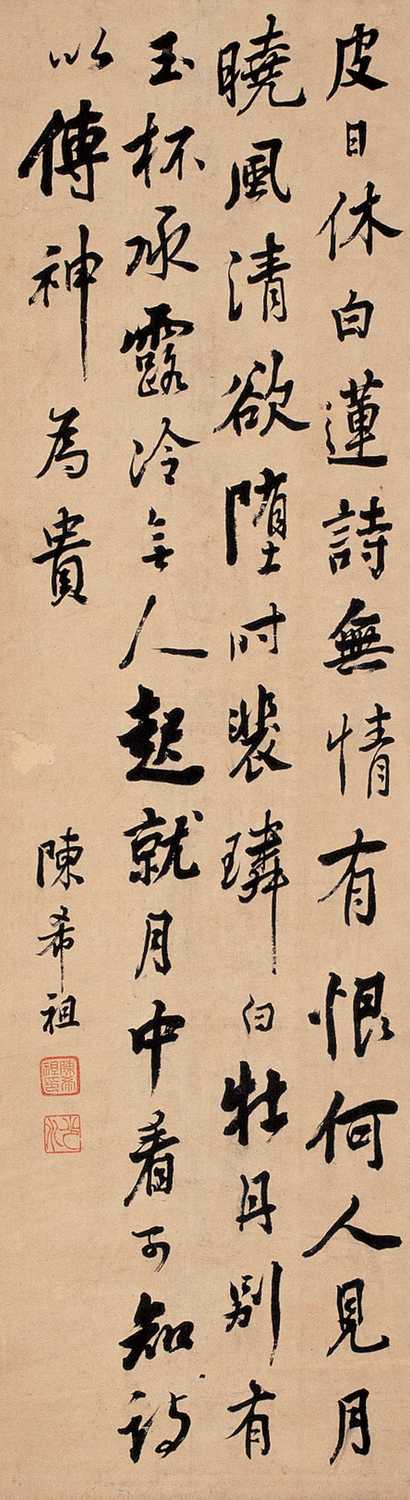 皮日休白蓮詩無情有恨何人見月
曉風清欲墮时裴璘白牡丹別有
玉杯承露冷無人起就月中看可知诗
以傳神為貴
陳希祖
陳希祖印